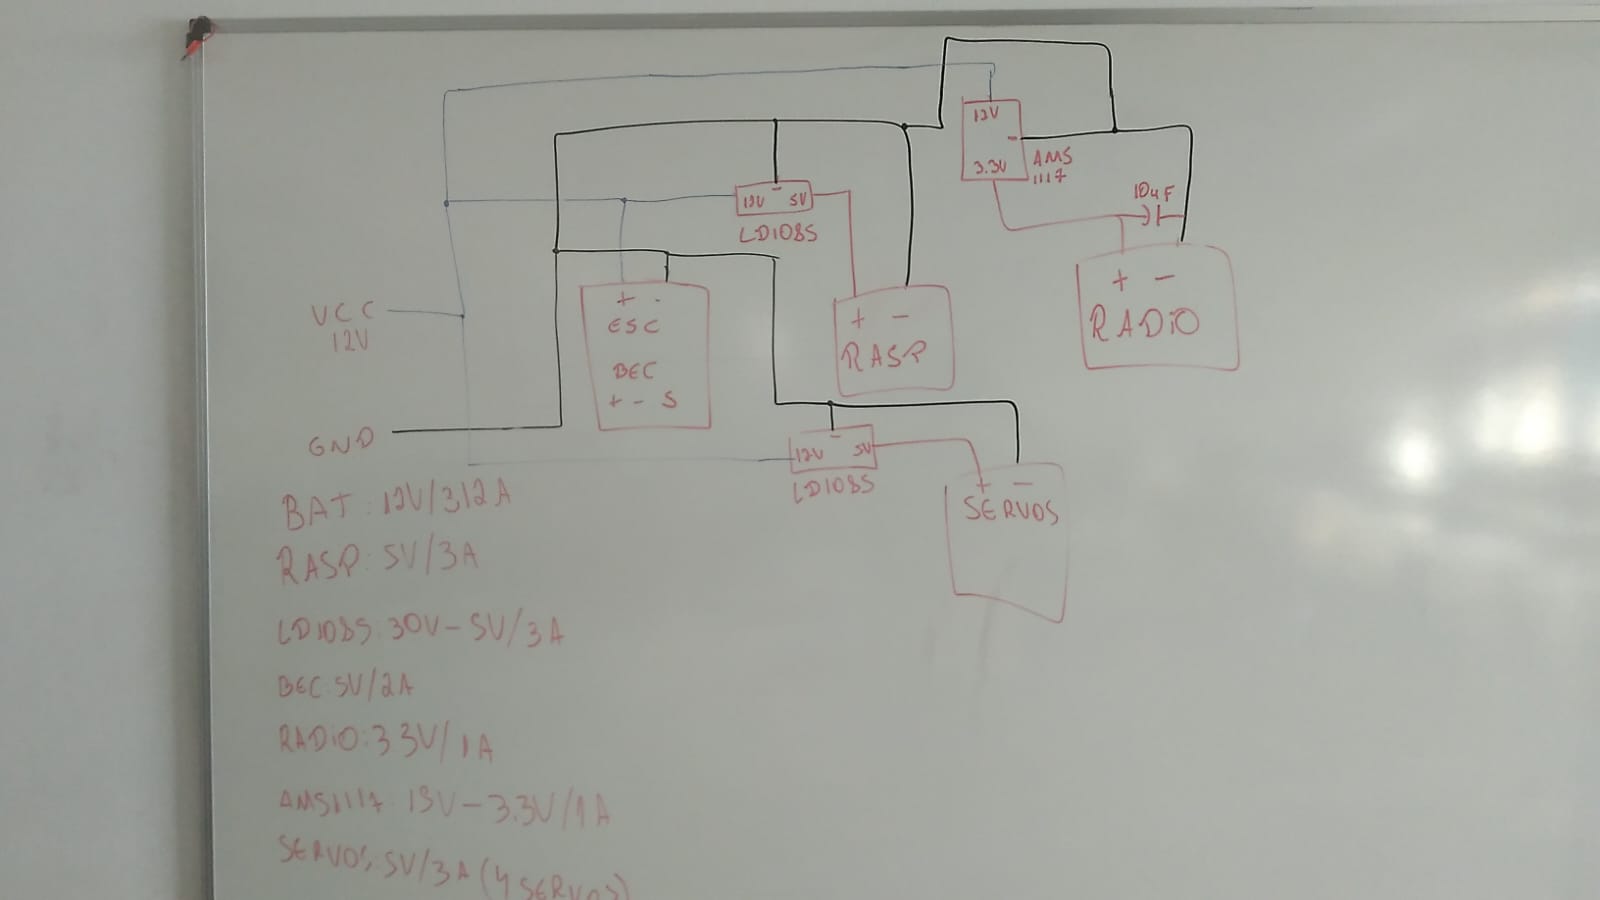 12V
-
3.3V
AMS
1117
10uF
- 
12V 5V
LD1085
+ -
RADIO
+ -
ESC
BEC
+ - S
+ -
RASP
VCC
12V
GND
-
12V 5V
LD1085
+ -
SERVOS
BAT: 12V/312A
RASP: 5V/3A
LD1085: 30V-5V/3A
BEC: 5V/2A
RADIO: 3.3V/1A
AMS1117: 15V-3.3V/1A
SERVOS: 5V/3A (4 SERVOS)